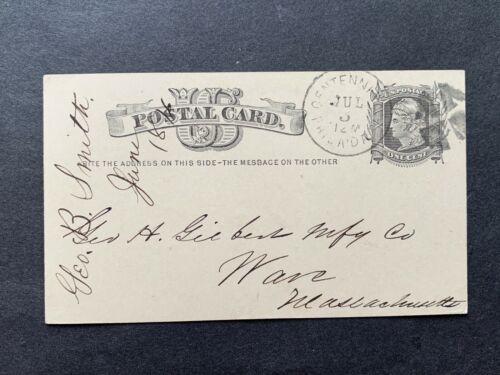 US
POSTAL CARD.
WRITE THE ADDRESS ON THIS SIDE-THE MESSAGE ON THE OTHER
CENTENNIAL
JUL
5
12M
PHILA'D'A
U.S. POSTAL
ONE CENT
Geo. B. Smith.
June
Geo H. Gilbert Mfg Co
Ware
Massachusetts